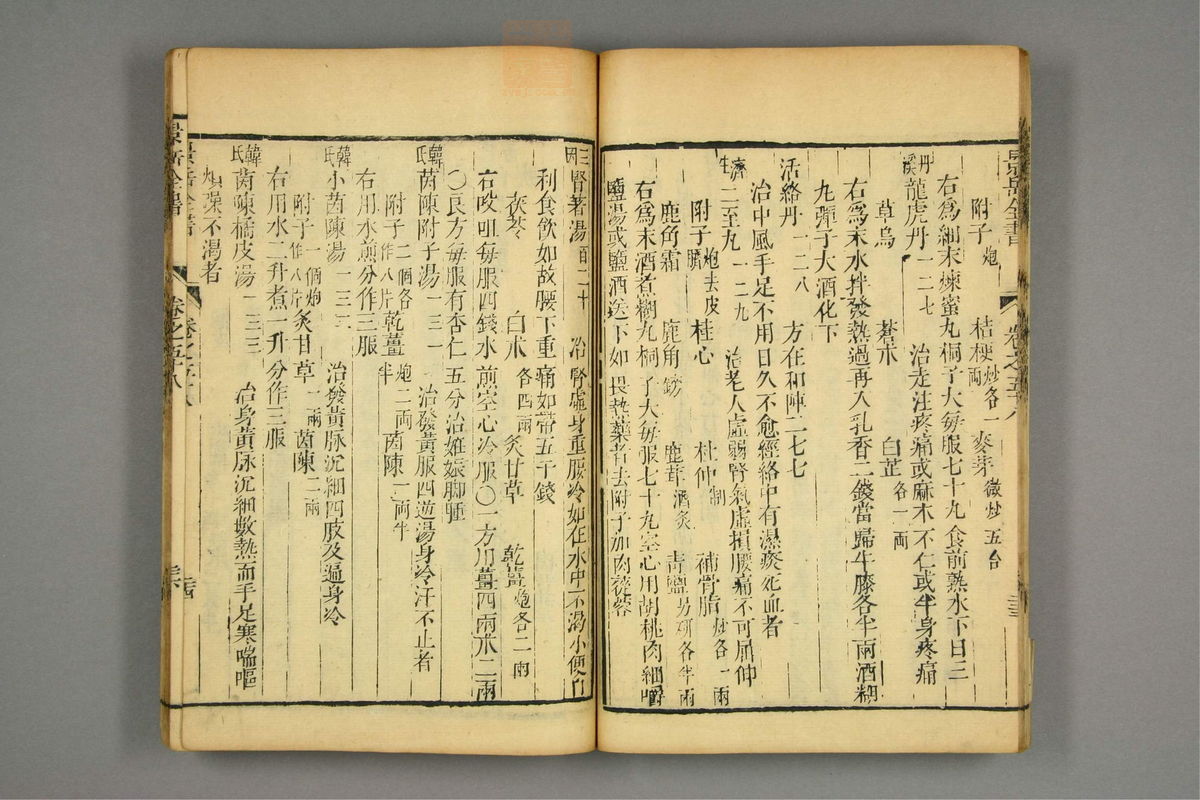 景岳全書 卷之五十八
附子炮 桔梗炒各一兩 麥芽微炒五合
右爲細末煉蜜丸桐子大每服七十丸食前熱水下日三
丹溪龍虎丹一二七 治走注疼痛或麻木不仁或半身疼痛
草烏 蒼朮 白芷各一兩
右爲末水拌發熱過再入乳香二錢當歸牛膝各半兩酒糊
丸彈子大酒化下
活絡丹一二八 方在和陣二七七
治中風手足不用日久不愈經絡中有濕痰死血者
濟生二至丸一二九 治老人虛弱腎氣虛損腰痛不可屈伸
附子炮去皮臍 桂心 杜仲制 補骨脂炒各一兩
鹿角霜 鹿角鎊 鹿茸酒炙 青鹽另研各半兩
右爲末酒煮糊丸桐子大每服七十丸空心用胡桃肉細嚼
鹽湯或鹽酒送下如畏熱藥者去附子加肉蓯蓉
三因腎著湯百三十 治腎虛身重腰冷如在水中不渴小便自
利食飲如故腰下重痛如帶五千錢
茯苓 白朮各四兩 炙甘草 乾薑炮各二兩
右㕮咀每服四錢水煎空心冷服〇一方用薑四兩朮二兩
〇良方每服有杏仁五分治姙娠脚腫
韓氏茵陳附子湯一三一 治發黃服四逆湯身冷汗不止者
附子二個各作八片 乾薑炮二兩半 茵陳一兩半
右用水煎分作三服
韓氏小茵陳湯一三二 治發黃脉沉細四肢及遍身冷
附子一個炮作八片 炙甘草一兩 茵陳二兩
右用水二升煮一升分作三服
韓氏茵陳橘皮湯一三三 治身黃脉沉細數熱而手足寒喘嘔
煩躁不渴者
景岳全書 卷之五十八